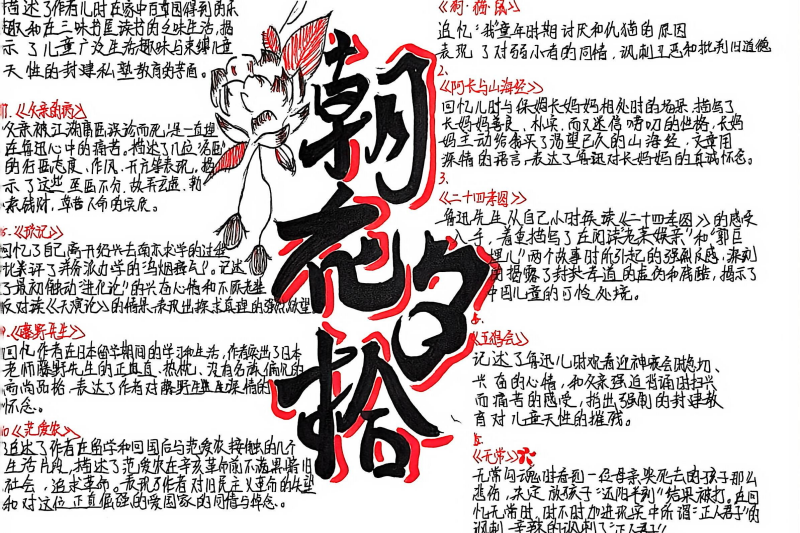 朝花夕拾
描述了作者儿时在家中百草园得到的乐
趣和在三味书屋读书的乏味生活，揭
示了儿童广泛生活趣味与束缚儿童
天性的封建私塾教育的矛盾。
《父亲的病》
父亲被江湖庸医误治而死，是一直埋
在鲁迅心中的痛苦。描述了几位"名医"
的行医态度、作风、开方等表现，揭
示了这些巫医不分、故弄玄虚、勒
索钱财，草菅人命的实质。
《琐记》
回忆了自己离开绍兴去南京求学的过程
了最初接触"进化论"的兴奋心情和不顾老辈
反对读《天演论》的情景，表现出探求真理的强烈欲望
9.《藤野先生》
回忆作者在日本留学期间的学习和生活，作者突出了日本
老师藤野先生的正直、热忱、没有名族偏见的
高尚品格，表达了作者对藤野先生深情的
怀念。
10《范爱农》
追述了作者在留学和回国后与范爱农接触的几个
生活片段，描述了范爱农在辛亥革命前不满黑暗旧
社会，追求革命。表现了作者对旧民主义革命的失望
和对这位正直倔强的爱国家的同情与悼念。
《狗·猫·鼠》
追忆"我"童年时期讨厌和仇猫的原因
表现了对弱小者的同情，讽刺丑恶和批判旧道德
2.
《阿长与山海经》
回忆儿时与保姆长妈妈相处时的场景，描写了
长妈妈善良、朴实，而又迷信唠叨的性格，长妈
妈主动给我买了渴望已久的山海经，文章用
深情的语言，表达了鲁迅对长妈妈的真诚怀念。
3.
《二十四孝图》
鲁迅先生从自己小时候读《二十四孝图》的感受
入手，着重描写了在阅读"老莱娱亲"和"郭巨
埋儿"两个故事时所引起的强烈反感，深刻
的揭露了封建孝道的虚伪和残酷，揭示了
中国儿童的可怜处境。
《五猖会》
记述了鲁迅儿时观看迎神赛会时急切、
兴奋的心情，和父亲强迫背诵时扫兴
而痛苦的感受，指出强制的封建教
育对儿童天性的摧残。
《无常》六
无常勾魂时看到一位母亲哭死去的孩子那么
悲伤，决定放孩子"还阳半刻"结果被打。在回
忆无常时，时不时加进现实中所谓"正人君子"的
讽刺，辛辣的讽刺了"正人君子"